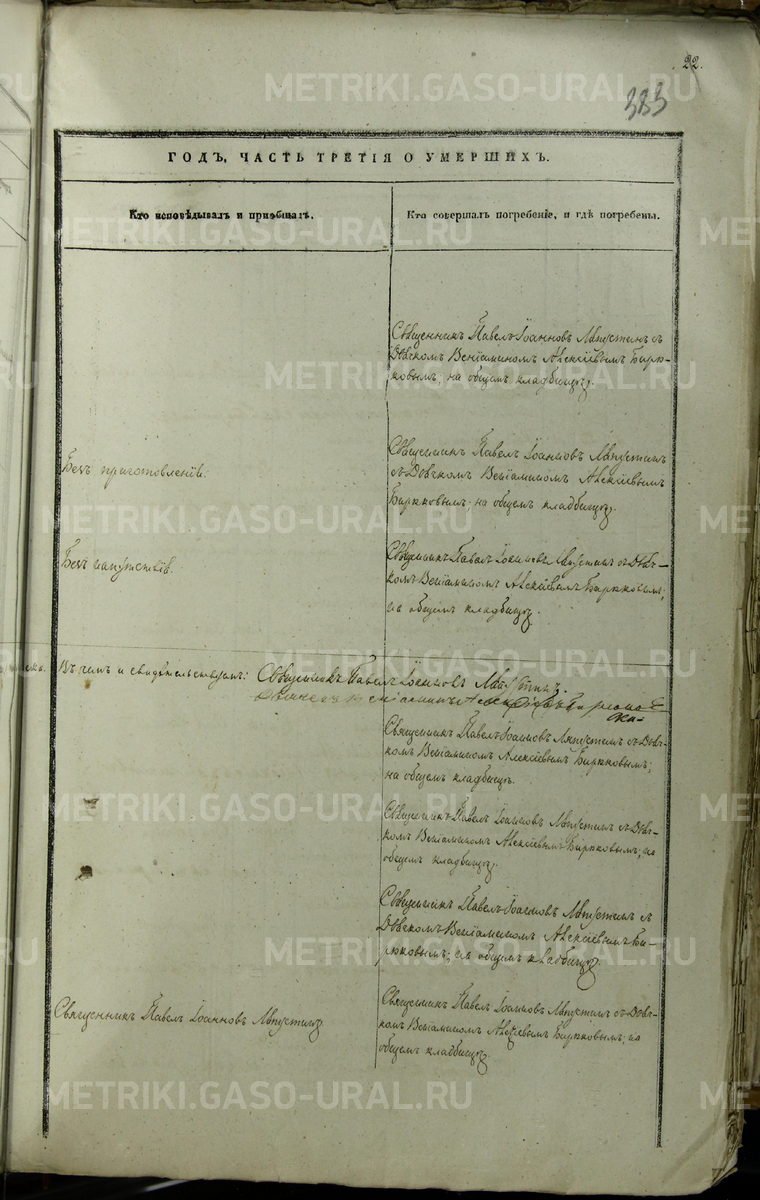 22.
383
ГОДЪ, ЧАСТЬ ТРЕТІЯ О УМЕРШИХЪ.
Кто исповѣдывалъ и пріобщалъ.
Кто совершалъ погребеніе, и гдѣ погребены.
Священникъ Павелъ Іоанновъ Августинъ съ
Дьячкомъ Веніаминомъ Алексіевымъ Бирю-
ковымъ, на общемъ кладбищѣ.
Безъ приготовленія.
Священникъ Павелъ Іоанновъ Августинъ
съ Дьячкомъ Веніаминомъ Алексіевымъ
Бирюковымъ; на общемъ кладбищѣ.
Безъ напутствія.
Священникъ Павелъ Іоанновъ Августинъ съ Дьяч-
комъ Веніаминомъ Алексіевымъ Бирюковымъ;
на общемъ кладбищѣ.
Въ чемъ и свидѣтельствуемъ: Священникъ Павелъ Іоанновъ Августинъ.
Веніаминъ Алексіевъ
Священникъ Павелъ Іоанновъ Августинъ съ Дьяч-
комъ Веніаминомъ Алексіевымъ Бирюковымъ;
на общемъ кладбищѣ.
Священникъ Павелъ Іоанновъ Августинъ съ Дьяч-
комъ Веніаминомъ Алексіевымъ Бирюковымъ; на
общемъ кладбищѣ.
Священникъ Павелъ Іоанновъ Августинъ съ
Дьячкомъ Веніаминомъ Алексіевымъ Би-
рюковымъ; на общемъ кладбищѣ.
Священникъ Павелъ Іоанновъ Августинъ.
Священникъ Павелъ Іоанновъ Августинъ съ Дьяч-
комъ Веніаминомъ Алексіевымъ Бирюковымъ; на
общемъ кладбищѣ.
METRIKI.GASO-URAL.RU